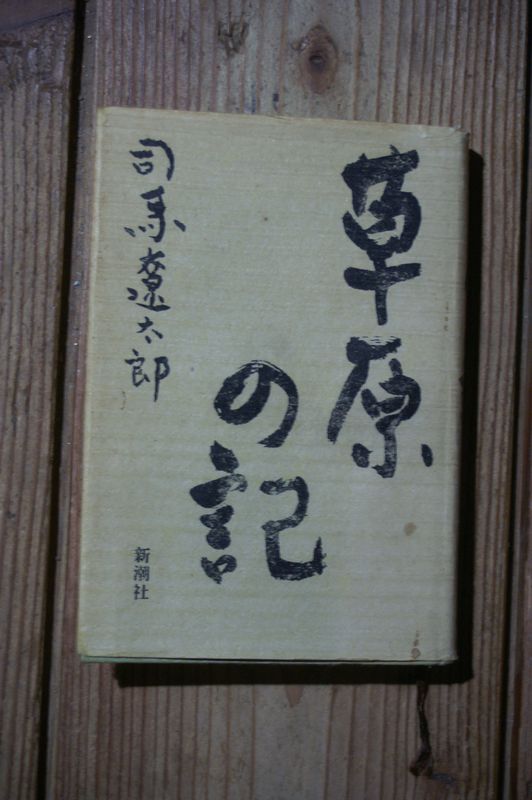 草原
の記
司馬遼太郎
新潮社